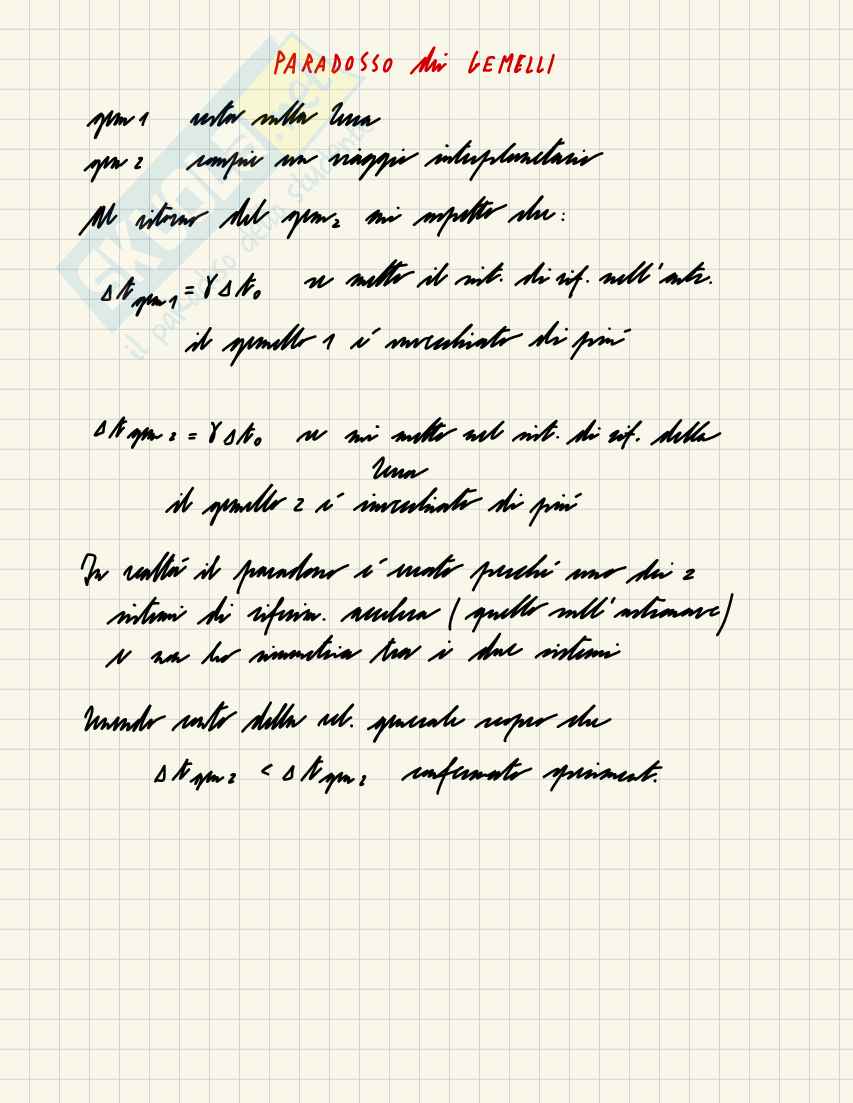 PARADOSSO dei GEMELLI
gem 1 resta sulla Terra
gem 2 compie un viaggio interplanetario
Al ritorno del gem 2 mi aspetto che:
Δt gem 1 = γ Δt₀ se metto il sist. di rif. nell'astr.
il gemello 1 é invecchiato di piú
Δt gem 2 = γ Δt₀ se mi metto nel sist. di rif. della
Terra
il gemello 2 é invecchiato di piú
In realtá il paradosso é errato perché uno dei 2
sistemi di riferim. accelera (quello sull'astronave)
e non ho simmetria tra i due sistemi
Tenendo conto della rel. generale scopro che
Δt gem 2 < Δt gem 2 confermato speriment.
SKUOLA.net
il paradiso dello studente